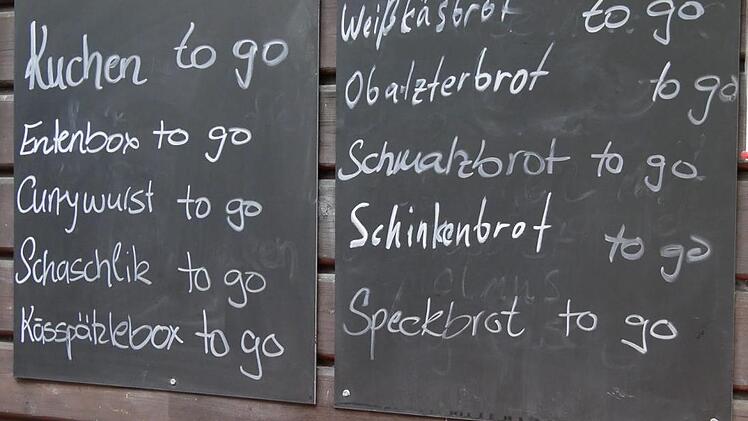 Kuchen to go
Entenbox to go
Currywurst to go
Schaschlik to go
Kässpätzlebox to go
Weißkäsbrot to go
Obalzterbrot to go
Schmalzbrot to go
Schinkenbrot to go
Speckbrot to go